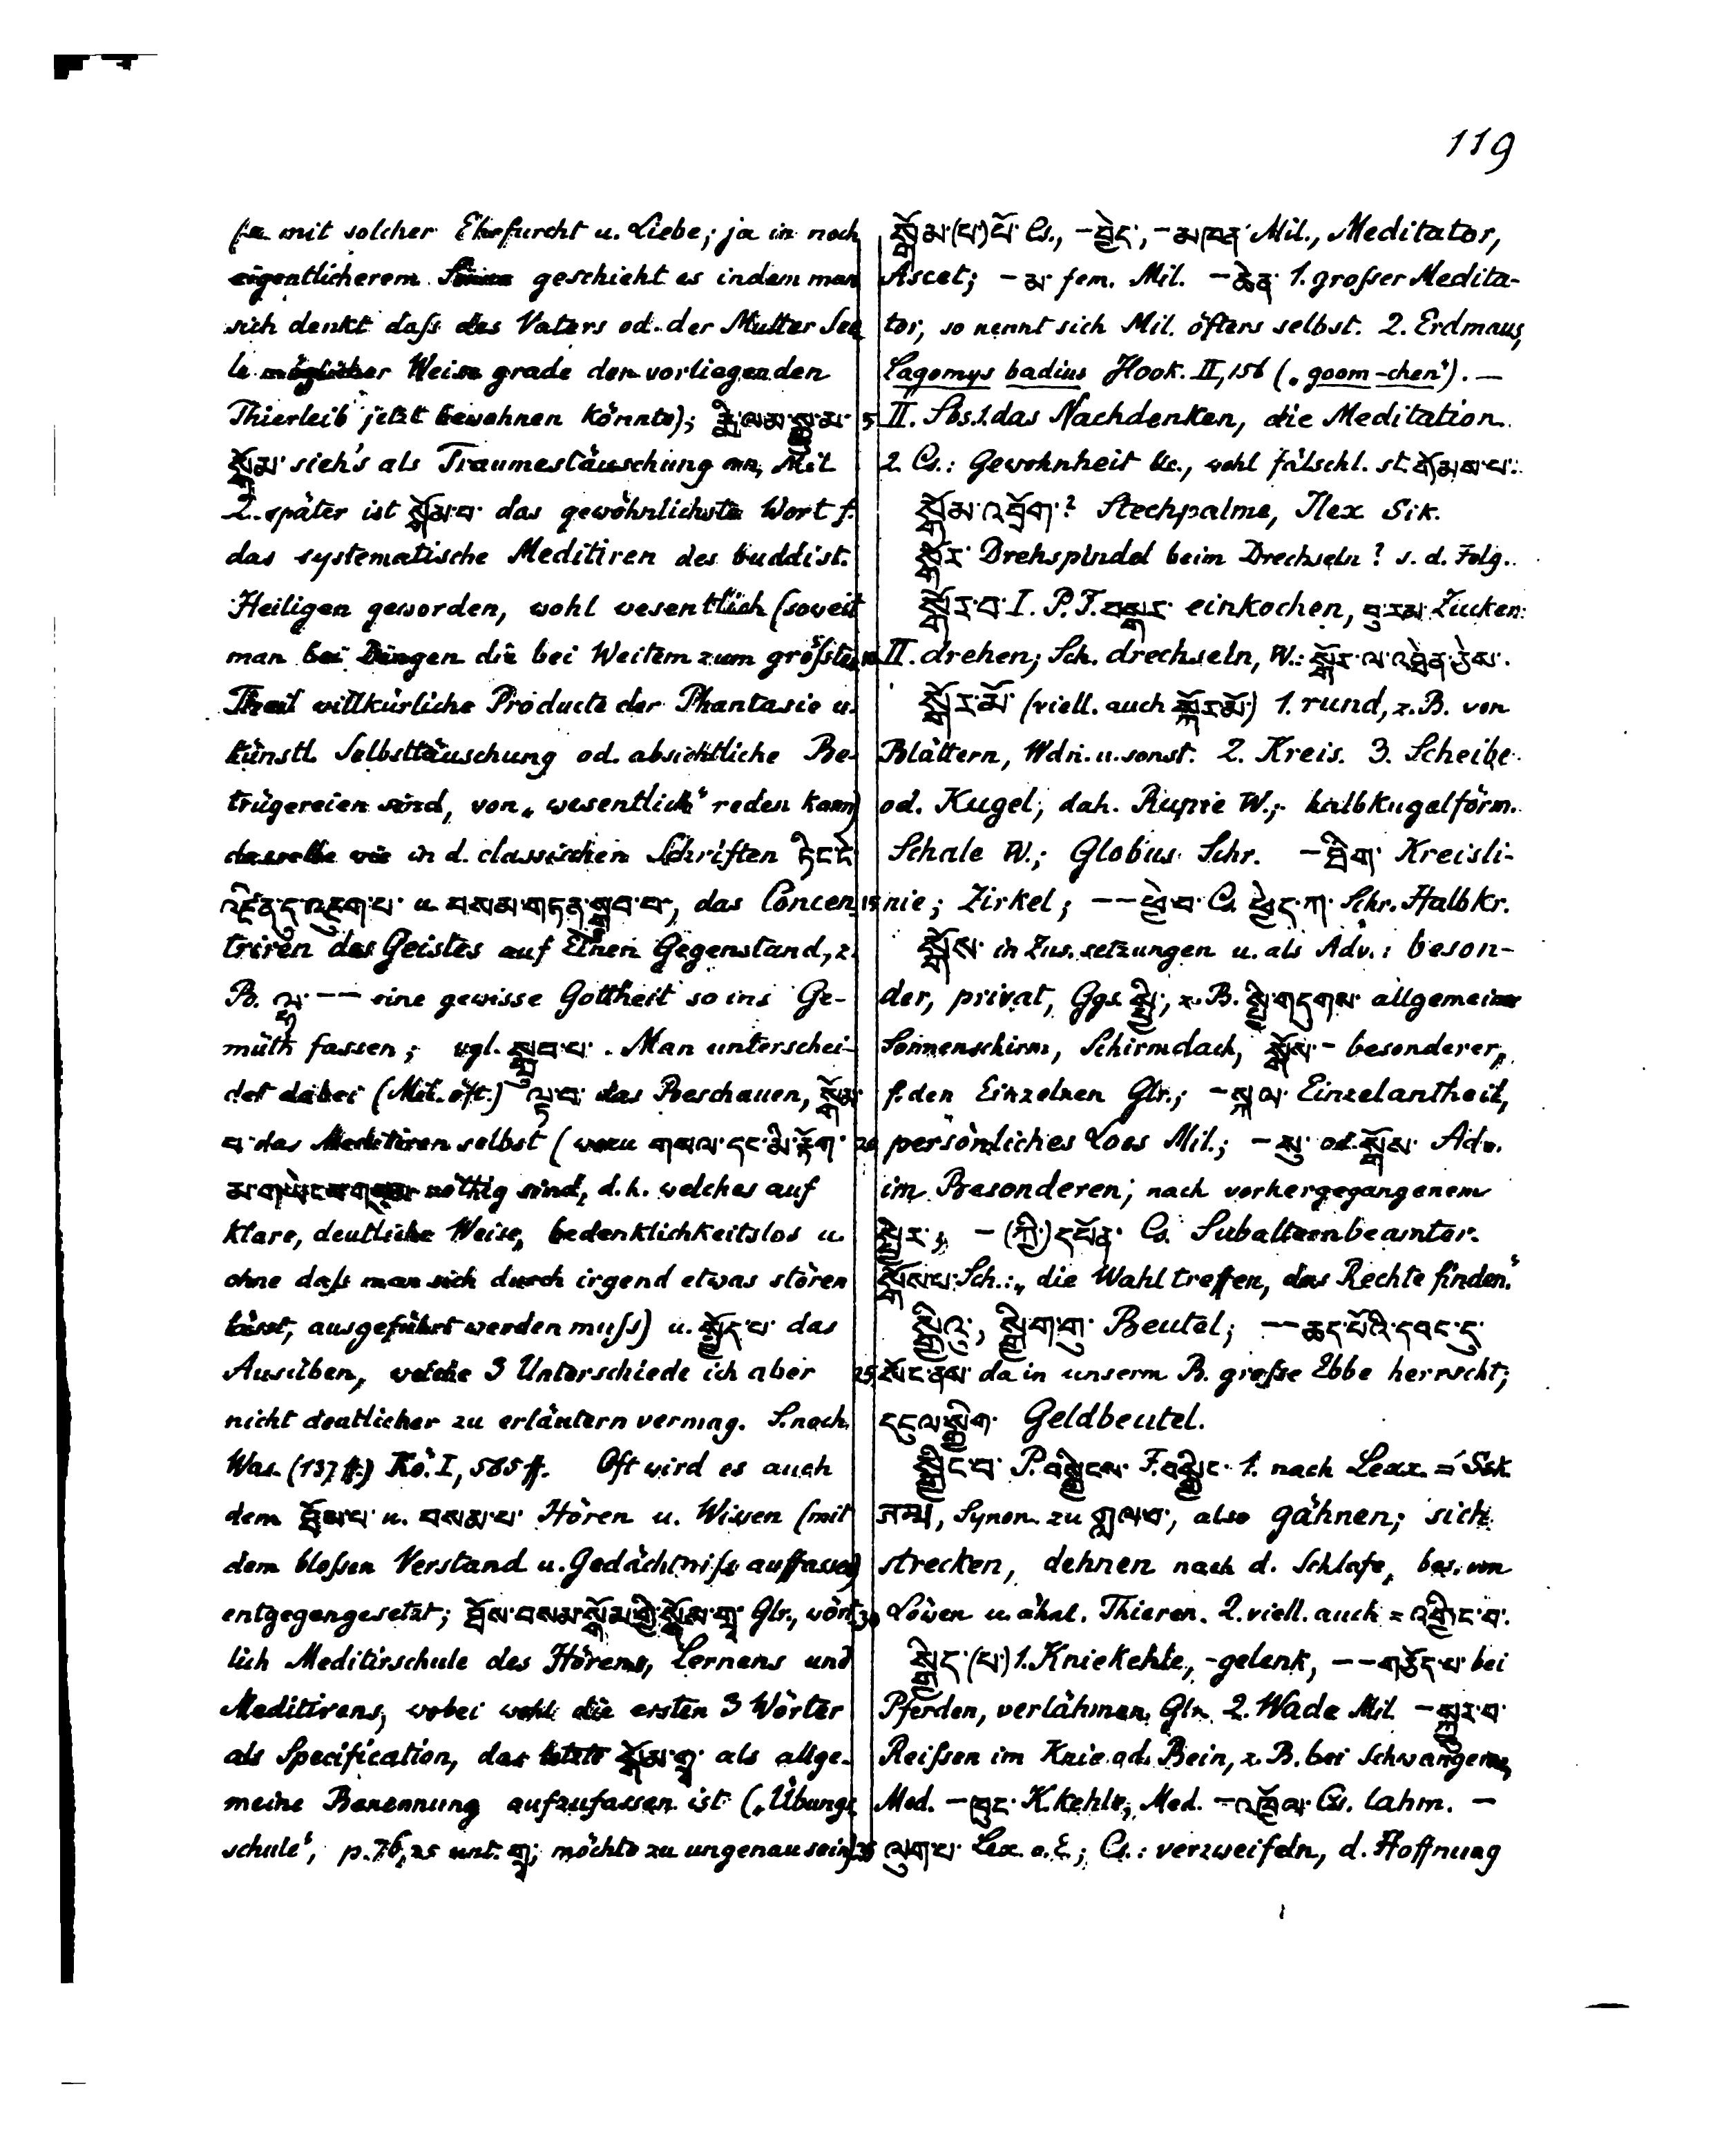 119
mit solcher Ehrfurcht u. Liebe; ja in noch
eigentlicherem Sinne geschieht es indem man
sich denkt daß des Vaters od. der Mutter See
le möglicher Weise grade den vorliegenden
Thierleib jetzt bewohnen könnte); རྨི་ལམ་སྒྱུ་མ་
སྒོམ་ sieh's als Traumestäuschung an, Mil
2. später ist སྒོམ་པ་ das gewöhnlichste Wort f.
das systematische Meditiren des buddist.
Heiligen geworden, wohl wesentlich (soweit
man bei Dingen die bei Weitem zum größten
Theil willkürliche Producte der Phantasie u.
künstl. Selbsttäuschung od. absichtliche Be-
trügereien sind, von „wesentlich“ reden kann)
dasselbe wie in d. classischen Schriften ཏིང་ངེ་
འཛིན་དུ་འཇུག་པ་ u. བསམ་གཏན་སྒྲུབ་པ་, das Concen
triren des Geistes auf Einen Gegenstand, z.
B. ལྷ་ -- eine gewisse Gottheit so ins Ge-
müth fassen; vgl. སྒྲུབ་པ་. Man unterschei-
det dabei (Mil. öft.) ལྟ་བ་ das Beschauen, སྒོམ་
པ་ das Meditiren selbst (wozu གསལ་དང་མི་རྟོག་
nöthig sind, d.h. welches auf
klare, deutliche Weise, bedenklichkeitslos u.
ohne daß man sich durch irgend etwas stören
lässt, ausgeführt werden muß) u. སྤྱོད་པ་ das
Ausüben, welche 3 Unterschiede ich aber
nicht deutlicher zu erläutern vermag. S. noch
Was. (137 ff.) Kö. I, 585 ff. Oft wird es auch
dem ཐོས་པ་ u. བསམ་པ་ Hören u. Wissen (mit
dem bloßen Verstand u. Gedächtniß auffassen)
entgegengesetzt; ཐོས་བསམ་སྒོམ་གྱི་སྒོམ་གྲྭ་ Glr., wört
lich Meditirschule des Hörens, Lernens und
Meditirens, wobei wohl die ersten 3 Wörter
als Specification, das letzte སྒོམ་གྲྭ་ als allge-
meine Benennung aufzufassen ist („Übungs
schule“, p. 76, 25 unt. གྲྭ; möchte zu ungenau sein)
སྒོམ་(པ་)པོ་ Cs., -བྱེད་, -མཁན་ Mil., Meditator,
Ascet; -མ་ fem. Mil. -ཆེན་ 1. großer Medita-
tor, so nennt sich Mil. öfters selbst. 2. Erdmaus,
Lagomys badius Hook. II, 156 („goom-chen“). —
5 II. Sbs. 1. das Nachdenken, die Meditation.
2. Cs.: Gewohnheit &c., wohl fälschl. st. གོམས་པ་.
སྒོམ་འབྲོག་? Stechpalme, Ilex Sik.
སྒོར་ Drehspindel beim Drechseln? s. d. Folg.
སྒོར་བ་ I. P. F. བསྒར་ einkochen, བུ་རམ་ Zucker
10 II. drehen; Sch. drechseln, W.: སྒོར་ལ་འཐེན་ཅེས་.
སྒོར་མོ་ (viell. auch སྐོར་མོ་) 1. rund, z.B. von
Blättern, Wdn. u. sonst. 2. Kreis. 3. Scheibe
od. Kugel; dah. Rupie W.; halbkugelförm.
Schale W.; Globus Schr. -ཐིག་ Kreisli-
15 nie; Zirkel; --ཕྱེ་བ་ Cs. ཕྱེད་ཀ་ Schr. Halbkr.
སྒོས་ in Zus.setzungen u. als Adv.: beson-
der, privat, Ggs. སྤྱི་, z.B. སྤྱི་གདུགས་ allgemeiner
Sonnenschirm, Schirmdach, སྒོས་- besonderer,
f. den Einzelnen Glr.; -སྐལ་ Einzelantheil,
20 persönliches Loos Mil.; -སུ་ od. སྒོས་ Adv.
im Besonderen; nach vorhergegangenem
སྤྱིར་; -(ཀྱི་)དཔོན་ Cs. Subalternbeamter.
སྒོས་པ་ Sch.: „die Wahl treffen, das Rechte finden.“
སྒྱིའུ་, སྒྱིག་གུ་ Beutel; --ཆད་པོའི་དབང་དུ་
25 སོང་ནས་ da in unserm B. große Ebbe herrscht;
དངུལ་སྒྱིག་ Geldbeutel.
སྒྱིང་བ་ P. བསྒྱིངས་ F. བསྒྱིང་ 1. nach Lexx. = Ssk.
Synon. zu གླལ་བ་, also gähnen; sich
strecken, dehnen nach d. Schlafe, bes. von
30 Löwen u. ähnl. Thieren. 2. viell. auch = འགྱིང་བ་.
སྒྱིད་(པ་) 1. Kniekehle, -gelenk, --གཅོད་པ་ bei
Pferden, verlähmen, Glr. 2. Wade Mil. -སྐྱུར་བ་
Reißen im Knie od. Bein, z.B. bei Schwangeren,
Med. -ཁུང་ K.kehle, Med. -འཁྱོལ་ Cs. lahm. —
35 ལུག་པ་ Lex. o. E.; Cs.: verzweifeln, d. Hoffnung